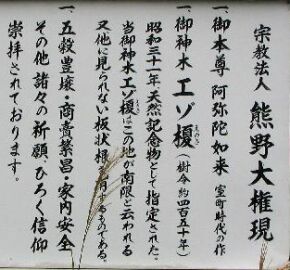 宗教法人 熊野大権現
一、御本尊 阿弥陀如来 室町時代の作
一、御神木 エゾ榎(樹令約四百五十年)
昭和三十一年天然記念物として指定された。
当御神木エゾ榎はこの地が南限と云われる
又他に見られない板状根 有するものである。
一、五穀豊穣・商売繁昌・家内安全
その他諸々の祈願、ひろく信仰
崇拝されております。